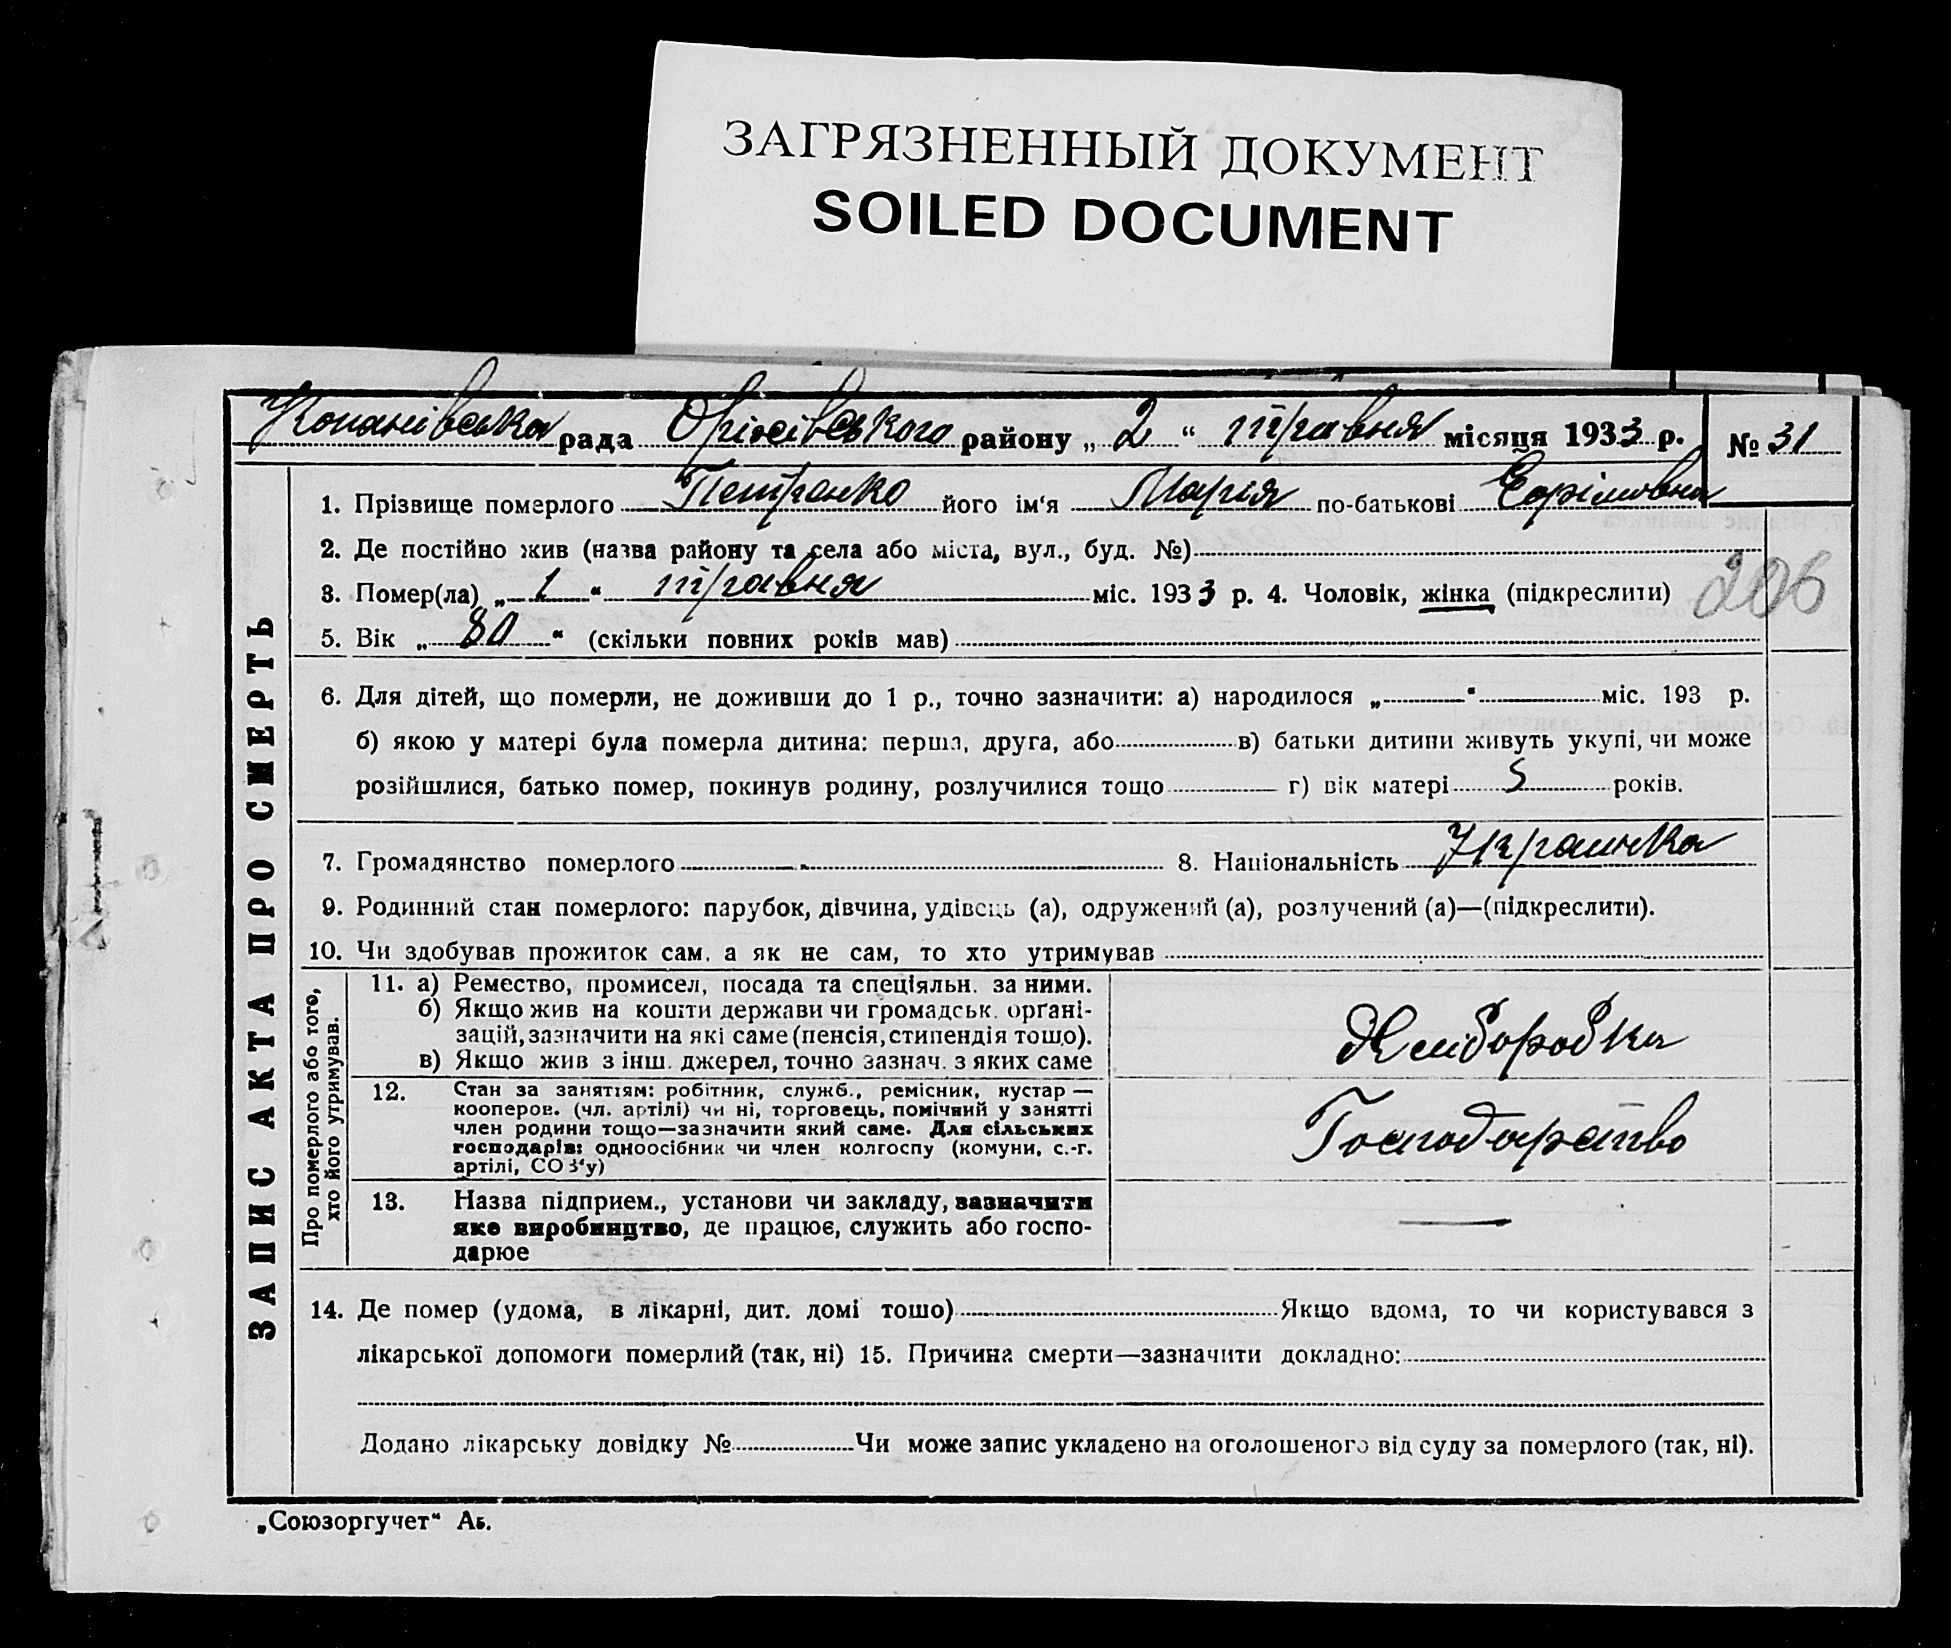 ЗАГРЯЗНЕННЫЙ ДОКУМЕНТ
SOILED DOCUMENT
Копанівська рада Оріхівського району „ 2 “ травня місяця 1933 р. № 31
ЗАПИС АКТА ПРО СМЕРТЬ
1. Прізвище померлого Петренко його ім‘я Марія по-батькові Єфімовна
2. Де постійно жив (назва району та села або міста, вул., буд. №)
206
3. Помер(ла) „ 1 “ травня міс. 1933 р. 4. Чоловік, жінка (підкреслити)
5. Вік „ 80 “ (скільки повних років мав)
6. Для дітей, що померли, не доживши до 1 р., точно зазначити: а) народилося „ “ міс. 193 р.
б) якою у матері була померла дитина: перша, друга, або в) батьки дитини живуть укупі, чи може
розійшлися, батько помер, покинув родину, розлучилися тощо г) вік матері років.
7. Громадянство померлого 8. Національність Українка
9. Родинний стан померлого: парубок, дівчина, удівець (а), одружений (а), розлучений (а)—(підкреслити).
10. Чи здобував прожиток сам, а як не сам, то хто утримував
Про померлого або того,
хто його утримував.
11. а) Ремество, промисел, посада та спеціяльн. за ними.
б) Якщо жив на кошти держави чи громадськ. орґані-
зацій, зазначити на які саме (пенсія, стипендія тощо).
в) Якщо жив з інш. джерел, точно зазнач. з яких саме
Хлиборобка
12. Стан за заняттям: робітник, служб., ремісник, кустар —
кооперов. (чл. артілі) чи ні, торговець, помічний у занятті
член родини тощо—зазначити який саме. Для сільських
господарів: одноосібник чи член колгоспу (комуни, с.-г.
артілі, СОЗ‘у)
Господарство
13. Назва підприєм., установи чи закладу, зазначити
яке виробництво, де працює, служить або госпо-
дарює
—
14. Де помер (удома, в лікарні, дит. домі тощо) Якщо вдома, то чи користувався з
лікарської допомоги померлий (так, ні) 15. Причина смерти—зазначити докладно:
Додано лікарську довідку № Чи може запис укладено на оголошеного від суду за померлого (так, ні).
„Союзоргучет“ Аб.